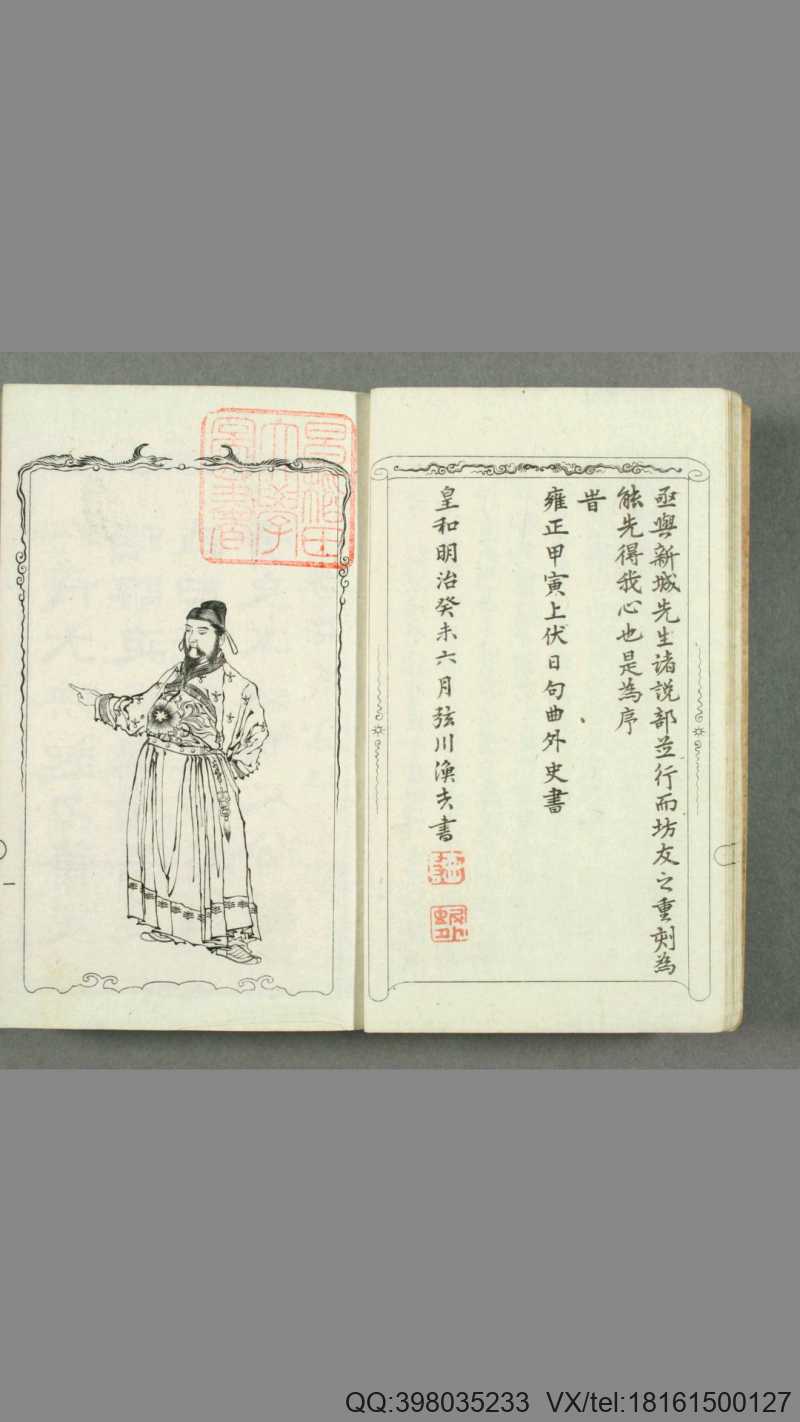 亟與新城先生諸說部並行而坊友之重刻為
能先得我心也是為序
旹
雍正甲寅上伏日句曲外史書
皇和明治癸未六月弦川渙士書
一
QQ:398035233 VX/tel:18161500127